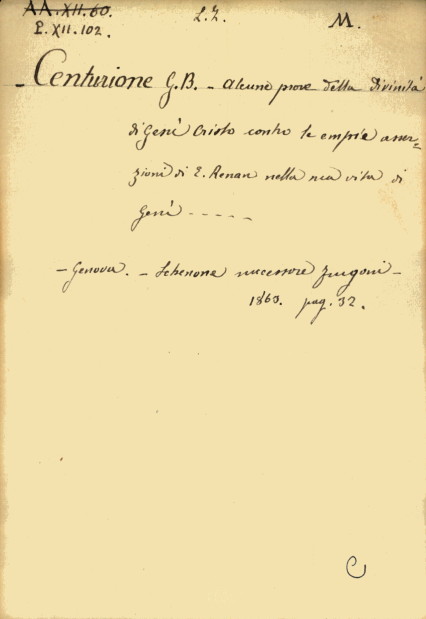 AA.XII.60.
L.Z.
M.
P.XII.102.
Centurione G.B. - Alcune prove della divinità
di Gesù Cristo contro le empie asser-
zioni di E. Renan nella sua vita di
Gesù - - - - -
- Genova. - Schenone successore Frugoni -
1863. pag. 32.
C